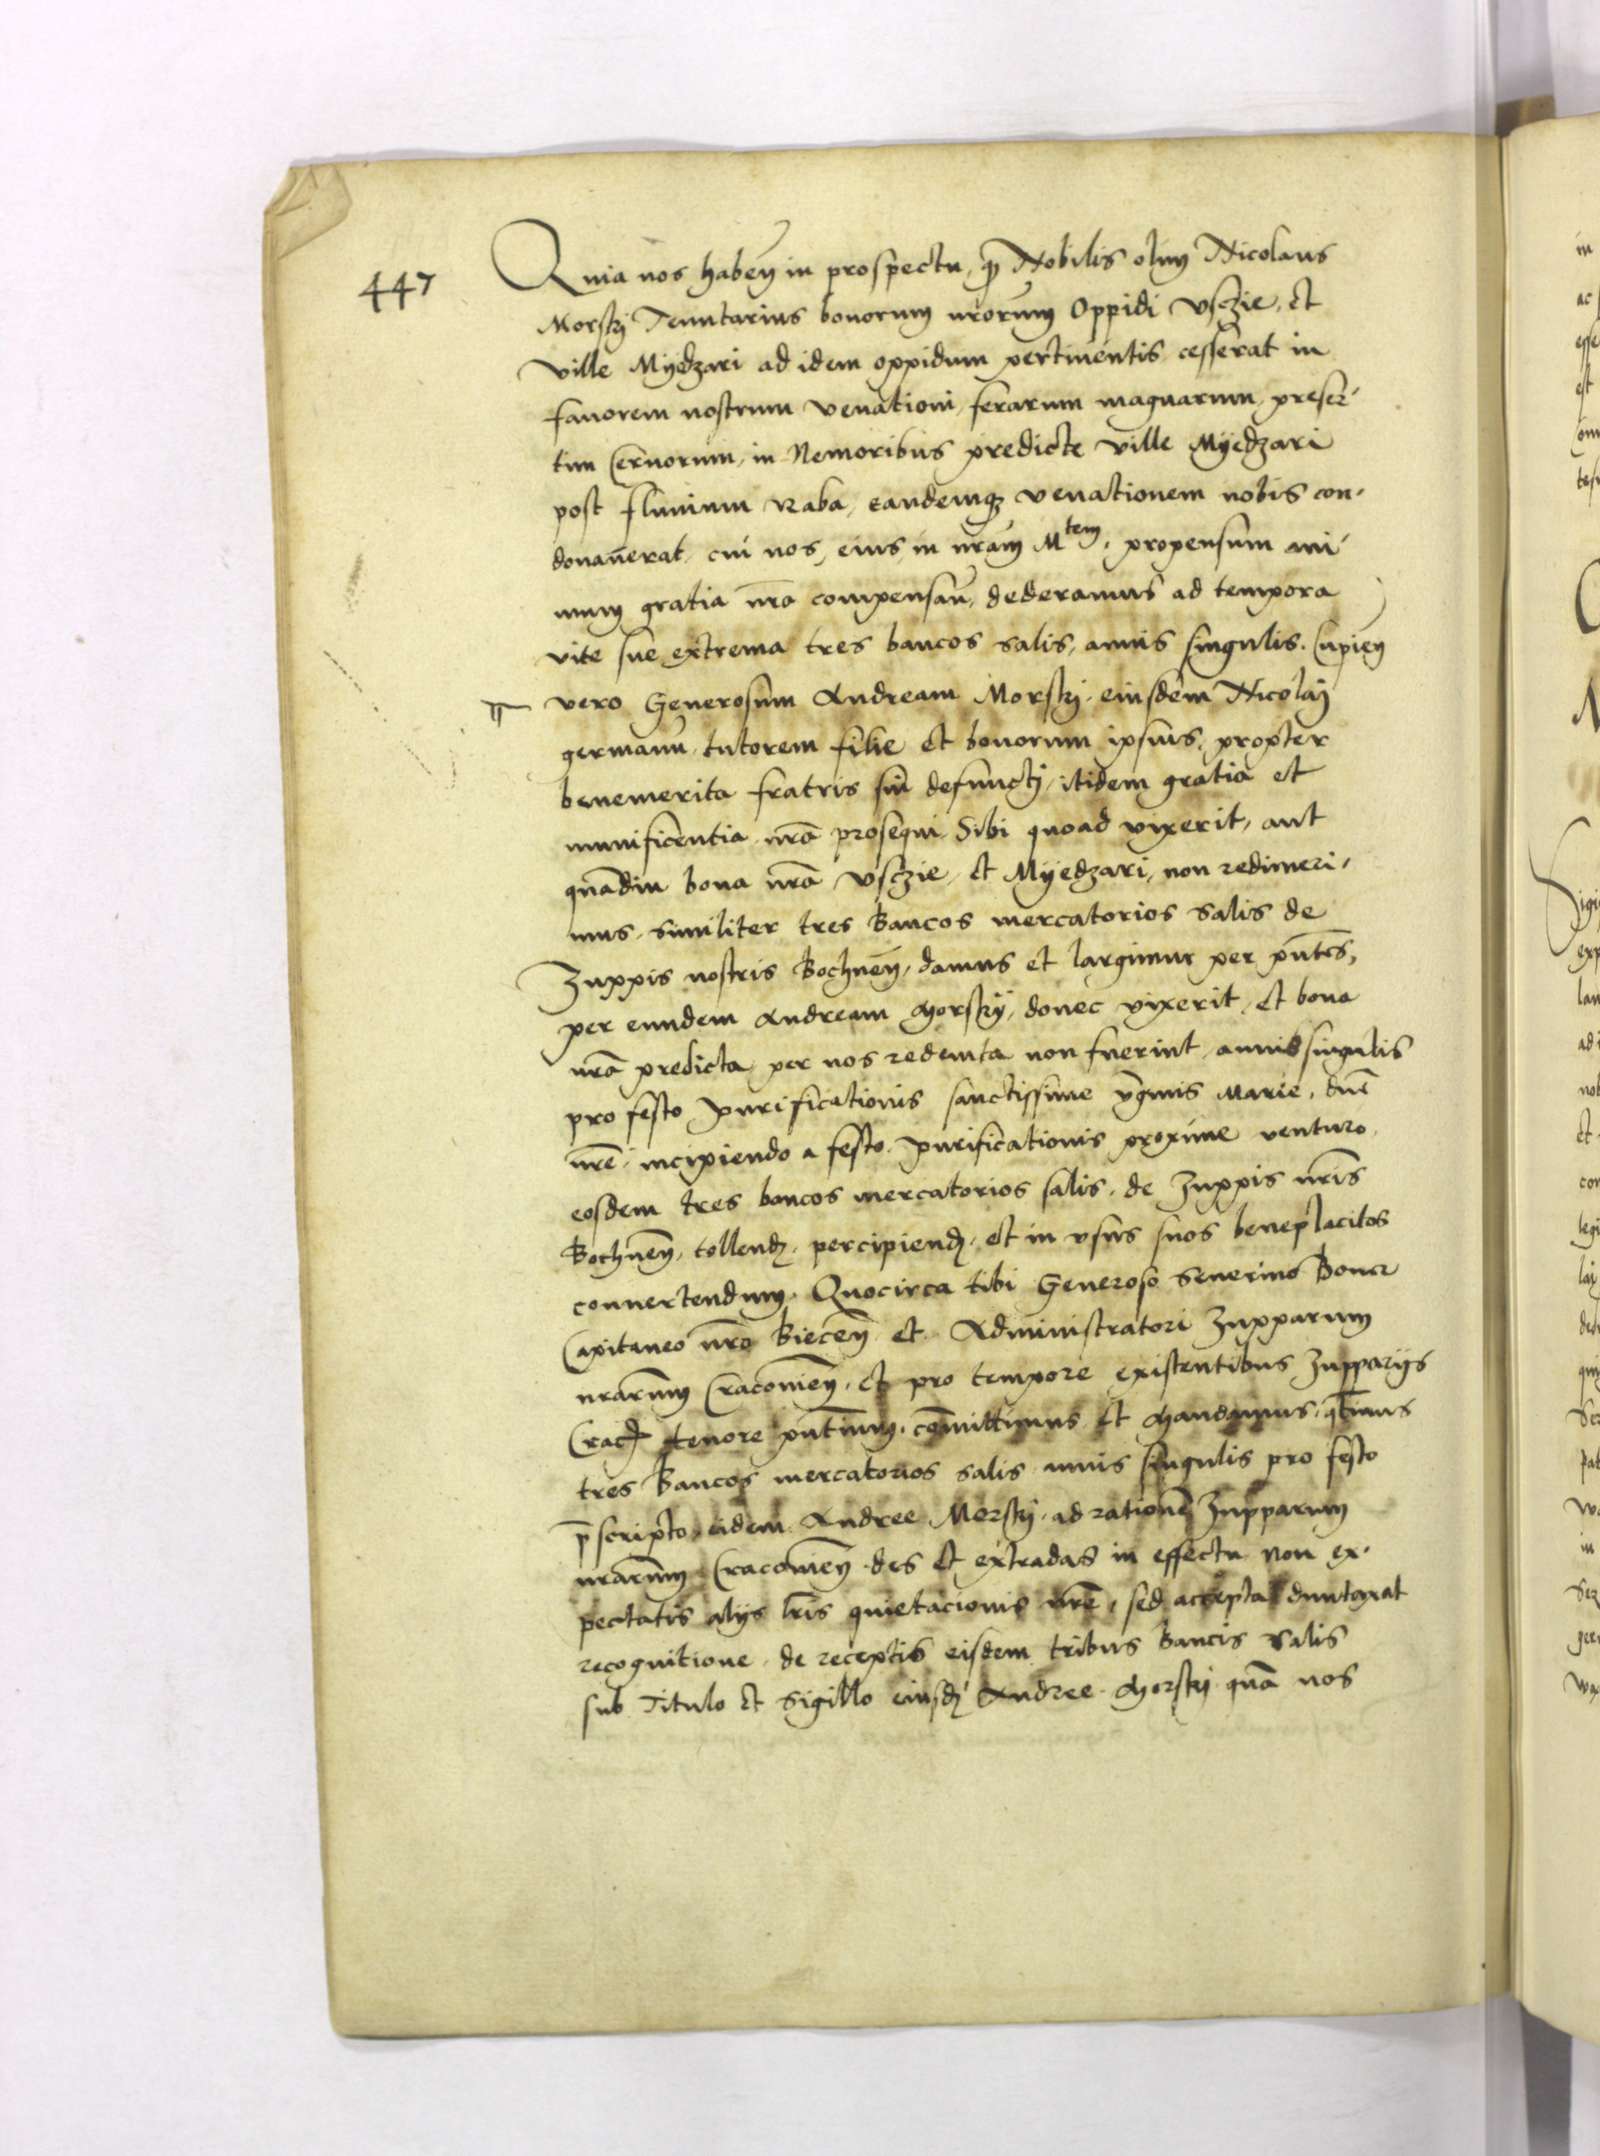 447
Quia nos habeñ in prospectu, qƺ Nobilis olim Nicolaus
Morskj Tenutarius bonorum nrorum Oppidi Vsczie, et
ville Myedzari ad idem oppidum pertinentis cesserat in
fauorem nostrum venationi, ferarum magnarum, preser-
tim Ceruorum, in Nemoribus predicte ville Myedzari
post fluuium Raba, eandemqƺ venationem nobis con-
donauerat. cui nos, eius in nrãm Mtem. propensum ani-
mum gratia nrã compensañ, dederamus ad tempora
vite sue extrema tres bancos salis, annis singulis. Cupieñ
vero Generosum Andream Morskj. eiusdem Nicolaj
germanũ, tutorem filie et bonorum ipsius, propter
benemerita fratris sui defunctj, itidem gratia et
munificentia nrã prosequi. Sibi quoad vixerit, aut
quãdiu bona nrã Vsczie, et Myedzari, non redimeri-
mus, similiter tres Bancos mercatorios Salis de
Zuppis nostris Bochneñ, damus et largimur per pñtes,
per eundem Andream Morskij, donec vixerit, et bona
nrã predicta per nos redemta non fuerint, annis singulis
pro festo purificationis sanctissime vgĩnis Marie, dñe
nrẽ, incipiendo a festo purificationis proxime venturo,
eosdem tres bancos mercatorios salis, de Zuppis nrĩs
Bochneñ, tollendƺ. percipiendƺ. et in vsus suos beneplacitos
conuertendum. Quocirca tibi Generoso Seuerino Boner
Capitaneo nrõ Bieceñ et Administratori Zupparum
nrarum Cracouieñ, et pro tempore existentibus Zupparijs
Crac tenore pñtium, com̃ittimus et Mandamus, qt̃inus
tres Bancos mercatorios salis annis singulis pro festo
p̃scripto, eidem Andree Morskj. ad rationẽ Zupparum
nrarum Cracouieñ des et extradas in effectu non ex-
pectatis alijs lrĩs quietacionis nrẽ, sed accepta duntaxat
recognitione, de receptis eisdem tribus Bancis Salis
sub Titulo et Sigillo eiusdƺ Andree Morskj. quã nos